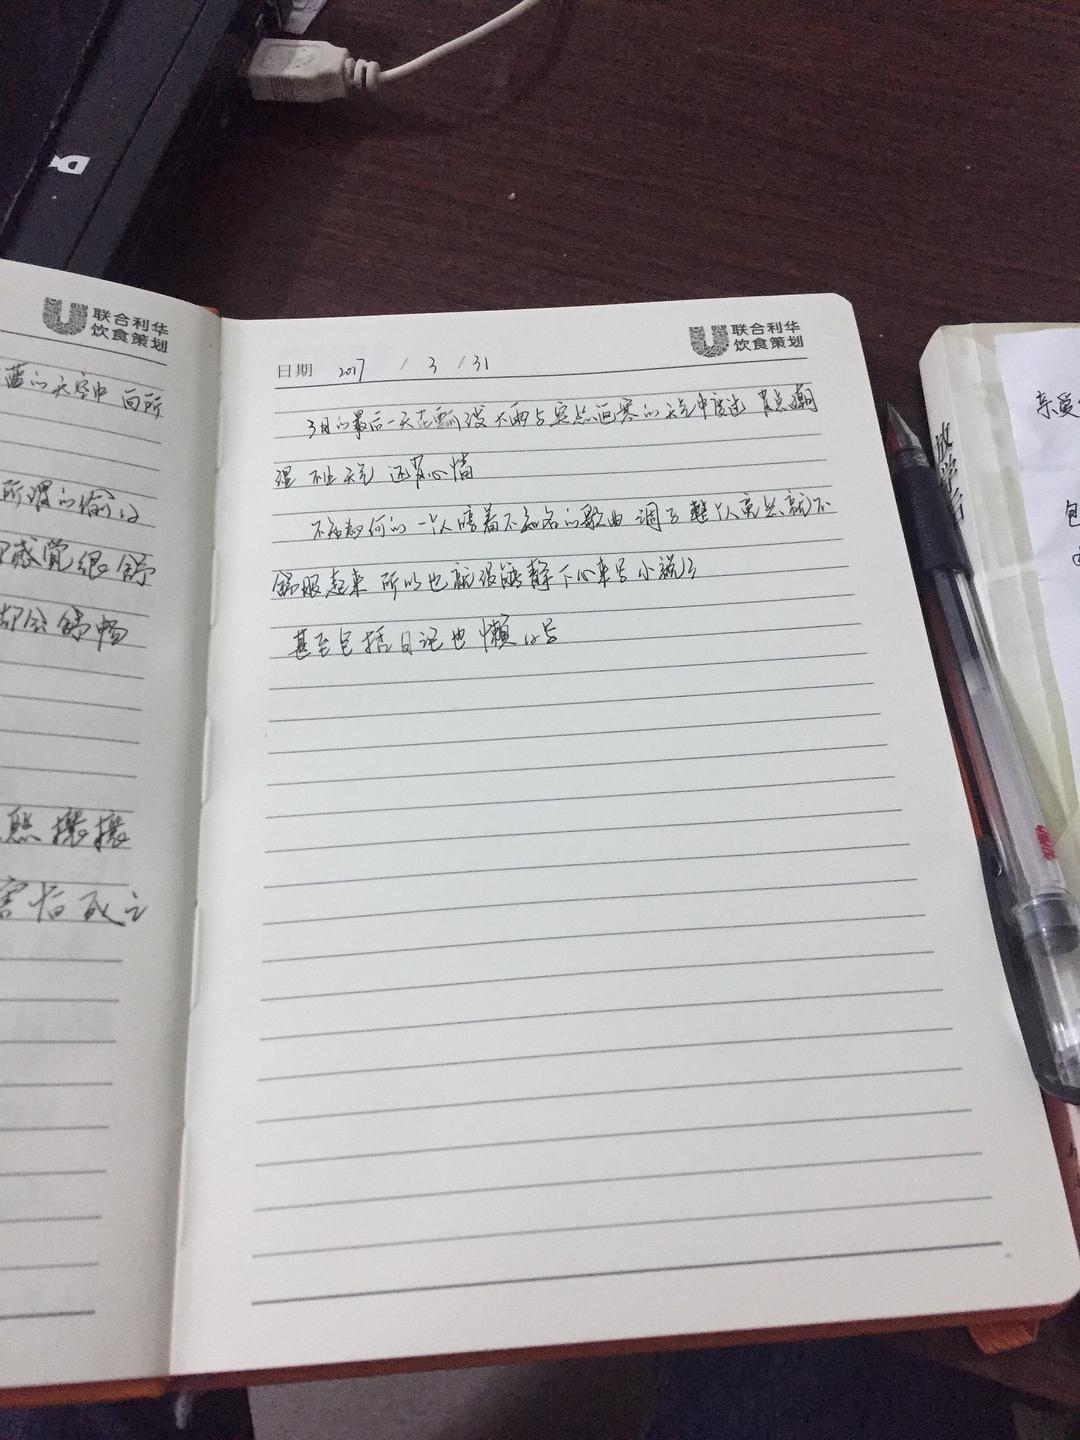 联合利华
饮食策划
蓝的天空中 向所
所谓的
感觉很舒
却会舒畅
熙攘攘
害怕死亡
联合利华
饮食策划
日期 2017 / 3 / 31
3月的最后一天在 大雨与突然回寒的天气中度过 有点潮
湿 不止天气 还有心情
不知为何的 一个人哼着不知名的歌曲 调子 整个人竟然就不
舒服起来 所以也就很难静下心来写小说了
甚至包括日记也懒得写
放学后
亲爱